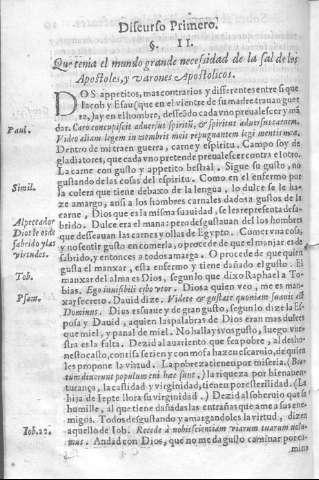 Discurso Primero.
§. II.
Que tenia el mundo grande necessidad de la sal de los
Apostoles, y varones Apostolicos.
DOS appetitos, mas contrarios y differentes entre si que
Iacob y Esau (que en el vientre de su madre trauan guer
ra,) ay en el hombre, desseãdo cada vno preualescer y mã
Paul.
dar. Caro concupiscit aduersus spiritũ, & spiritus aduersus carnem.
Video aliam legem in membris meis repugnantem legi mentis meæ.
Dentro de mi traen guerra, carne y espiritu. Campo soy de
gladiatores, que cada vno pretende preualescer contra el otro.
La carne con gusto y appetito bestial. Sigue su gusto, no
gustando de las cosas del espiritu. Como en el enfermo por
Simil.
la colera que tiene debaxo de la lengua, lo dulce se le ha-
ze amargo, ansi a los hombres carnales dados a gustos de la
carne, Dios que es la misma suauidad, se les representa desa-
Al pecador
brido. Dulce era el mana: pero desgustauan del los hombres
Dios le es de
que desseauan las carnes y ollas de Egypto. Comer vna cosa,
sabrido y las
y no sentir gusto en comerla, o procede de que el manjar es de
virtudes.
sabrido, y entonces a todos amarga. O procede de que quien
gusta el manxar, esta enfermo y tiene dañado el gusto. El
manxar del alma es Dios, segun lo que dixo Raphael a To-
Tob.
bias. Ego inuisibili cibo vtor. Diosa quien veo, me es man-
Psam.
xar secreto. Dauid dize. Videte & gustate quoniam suauis est
Dominus. Dios es suaue y de gran gusto, segun lo dize la Es-
posa y Dauid, a quien las palabras de Dios eran mas dulces
que miel, y panal de miel. No hallays vos gusto, luego vue-
stra es la falta. Dezid al auariento que sea pobre, al desho-
nesto casto, con risa serien y con mofa hazen escarnio, de quien
les propone la virtud. La pobreza tienen por miseria. (Bea-
tum dixerunt populum cui hæc sunt.) la riqueza por bienauen-
turança, la castidad y virginidad, tienen por esterilidad. (La
hija de Iepte llora su virginidad.) Dezid al soberuio que sea
humilde, al que tiene dañadas las entrañas que ame a sus ene-
migos. Todos desgustando y amargandoles la virtud, dizen
Iob. 22.
aquello de Iob. Recede à nobis scientiam viarum tuarum nolu-
mus. Andad con Dios, que no me da gusto caminar por ca-
mino